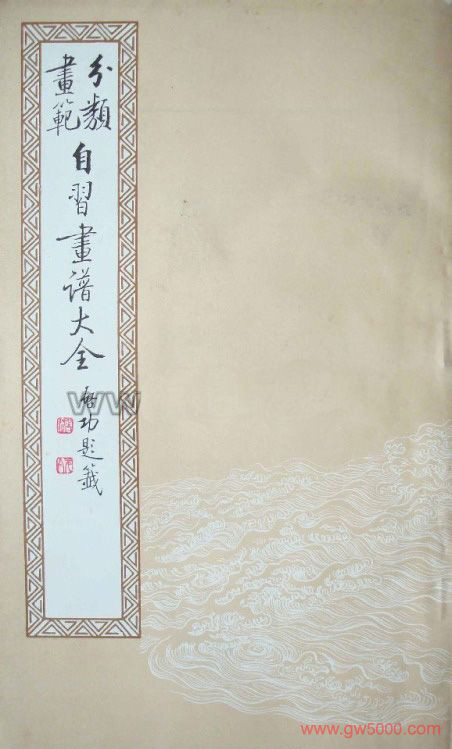 分類
畫範
自習畫譜大全
啓功題籤
WW
www.gw5000.com